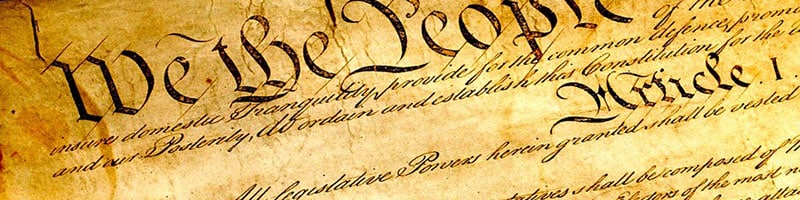 We the People
of the
insure domestic Tranquility, provide for the common defence, promo
and our Posterity, do ordain and establish this Constitution for the
Article. I.
All legislative Powers herein granted shall be vested
shall be composed of
Electors of the most